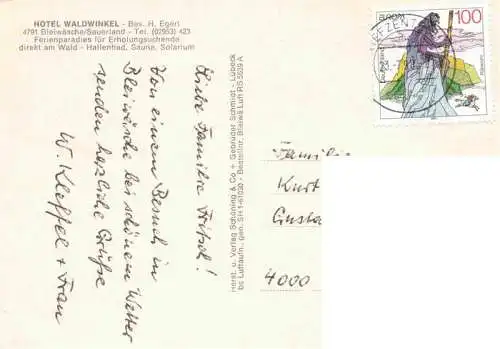 HOTEL WALDWINKEL - Bes. H. Egert
4791 Bleiwäsche/Sauerland - Tel. (02953) 423
Ferienparadies für Erholungsuchende
direkt am Wald - Hallenbad, Sauna, Solarium
Liebe Familie Fritsch!
Von einem Besuch in
Bleiwäsche bei schönem Wetter
senden herzliche Grüße
W. Kleffel + Frau
Herst. u. Verlag Schöning & Co + Gebrüder Schmidt - Lübeck
bs Luftaufn. gen. SH 1-61030 - Bestellnr. Bliewä Luft RS 5639 A
EUROPA
100
Deutsche
Familie
Kurt
Gusta
4000